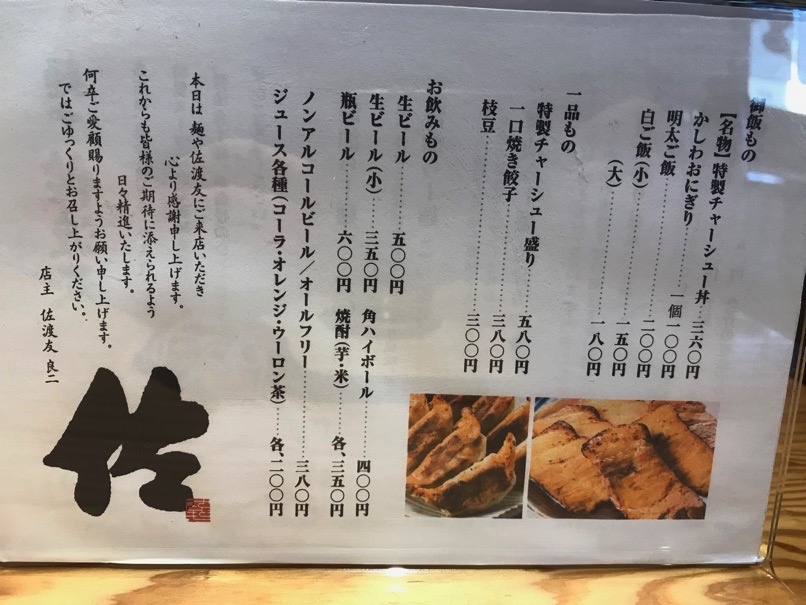 御飯もの
【名物】特製チャーシュー丼…三六〇円
かしわおにぎり………一個一〇〇円
明太ご飯………………二〇〇円
白ご飯(小)……………一五〇円
(大)……………一八〇円
一品もの
特製チャーシュー盛り……五八〇円
一口焼き餃子……………三八〇円
枝豆………………………三〇〇円
お飲みもの
生ビール………五〇〇円
生ビール(小)…三五〇円　角ハイボール……四〇〇円
瓶ビール………六〇〇円　焼酎(芋・米)……各、三五〇円
ノンアルコールビール／オールフリー…………三八〇円
ジュース各種(コーラ・オレンジ・ウーロン茶)……各、二〇〇円
本日は 麺や佐渡友にご来店いただき
心より感謝申し上げます。
これからも皆様のご期待に添えられるよう
日々精進いたします。
何卒ご愛顧賜りますようお願い申し上げます。
ではごゆっくりとお召し上がりください。
店主 佐渡友 良二
佐